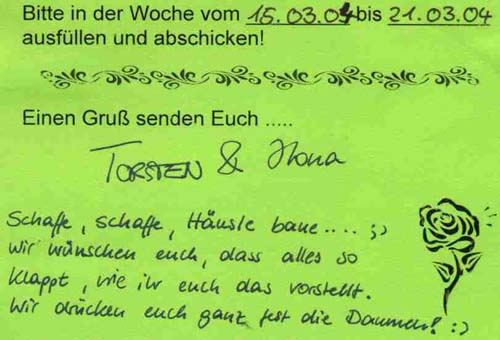 Bitte in der Woche vom 15.03.04 bis 21.03.04
ausfüllen und abschicken!
Einen Gruß senden Euch .....
TORSTEN & Ilona
Schaffe, schaffe, Häusle baue.... ;)
Wir wünschen euch, dass alles so
klappt, wie ihr euch das vorstellt.
Wir drücken euch ganz fest die Daumen! :)